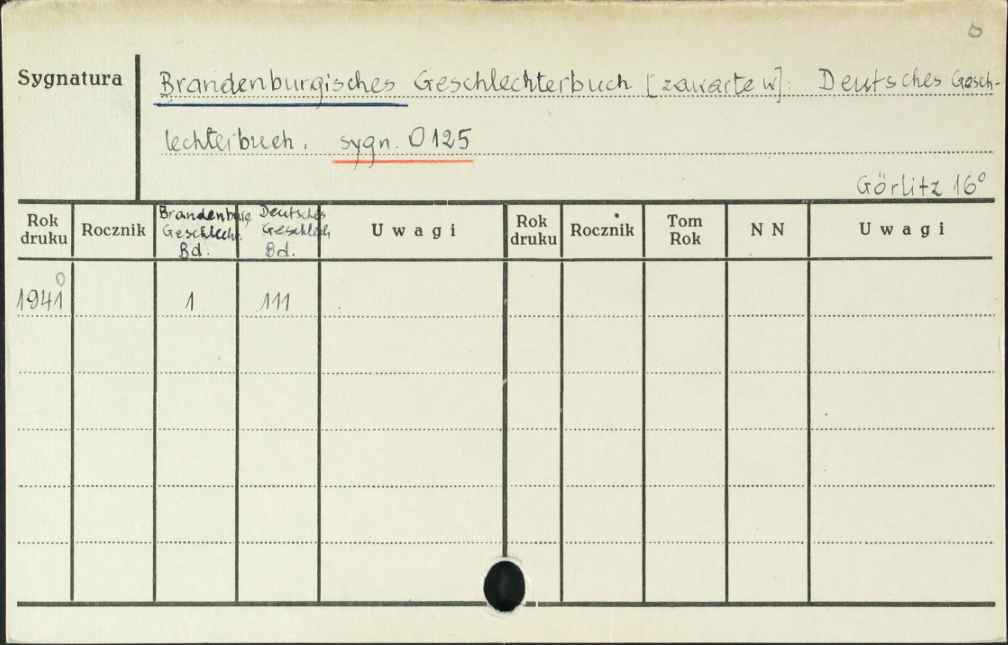 Sygnatura
Brandenburgisches Geschlechterbuch [zawarte w]: Deutsches Gesch-
lechterbuch. sygn. O 125
Görlitz 16°
Rok druku
Rocznik
Brandenburg Geschlech. Bd.
Deutsches Geschlech Bd.
Uwagi
Rok druku
Rocznik
Tom Rok
NN
Uwagi
0
1941 1 111